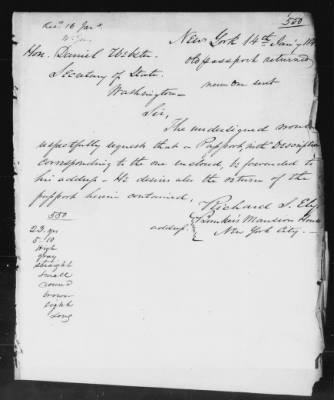 550
Rec'd 16 Jan'y
New York 14th Jan'y
Hon. Daniel Webster
old passport returned
Secretary of State
new one sent
Washington—
Sir,
The undersigned would
respectfully request that a Passport, with Description
corresponding to the one enclosed, be forwarded to
his address — He desires also the return of the
passport herein contained.
Richard S. Ely
address
Mansion House
New York City.—
550
23 yrs
5.10
High
gray
straight
small
round
brown
light
long